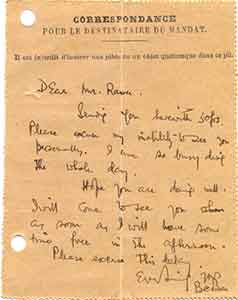 CORRESPONDANCE
POUR LE DESTINATAIRE DU MANDAT.
Il est interdit d'insérer une pièce ou un objet quelconque dans ce pli.
Dear Mr.
Sending you herewith 50frs.
Please excuse my inability to see you
personally. I am so busy during
the whole day.
Hope you are doing well.
I will come to see you
as soon as I will have some
time free in the afternoon.
Please excuse this delay
Ever